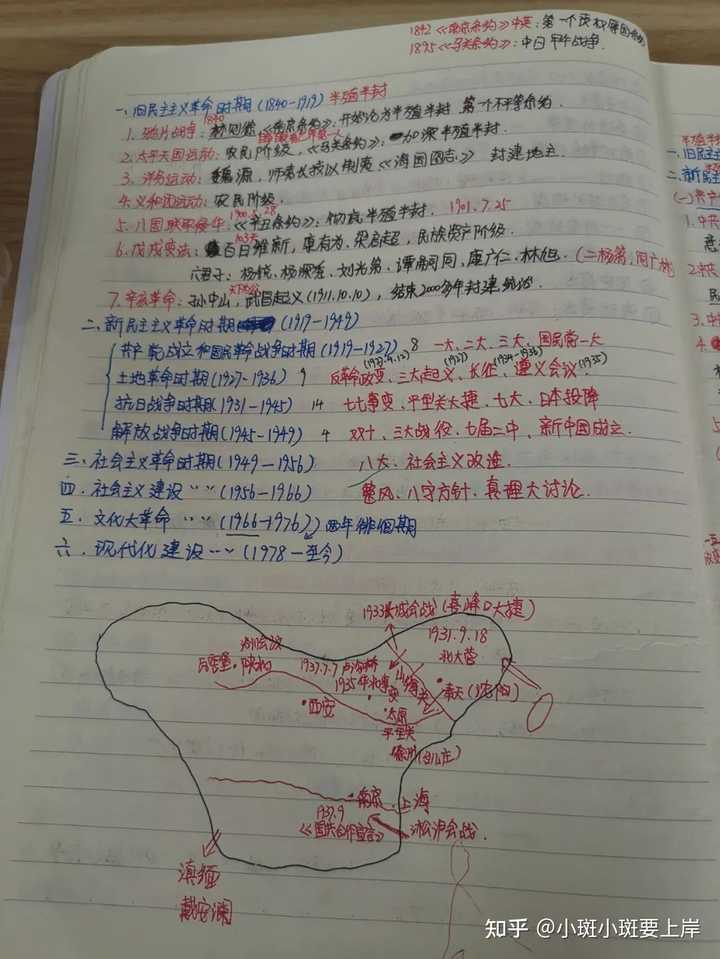 1842《南京条约》中英:第一个丧权辱国条约
1895《马关条约》:中日甲午战争.
一、旧民主主义革命时期(1840-1919)半殖半封
1840
1. 鸦片战争:林则徐《南京条约》:开始沦为半殖半封 第一个不平等条约.
2. 太平天国运动:农民阶级,《马关条约》:加深半殖半封.
3. 洋务运动:魏源,师夷长技以制夷《海国图志》 封建地主.
4. 义和团运动:农民阶级.
5. 八国联军侵华:《辛丑条约》:彻底半殖半封. 1901.7.25
103天
6. 戊戌变法:百日维新,康有为、梁启超,民族资产阶级.
六君子:杨锐、杨深秀、刘光第、谭嗣同、康广仁、林旭.
天下为公
7. 辛亥革命:孙中山,武昌起义(1911.10.10),结束2000多年封建统治.
二、新民主主义革命时期(1919-1949)
共产党成立和国民革命战争时期(1919-1927)8 一大、二大、三大、国民党一大
(1927) (1934-1936) (1935)
土地革命时期(1927-1936)9 反革命政变、三大起义、长征、遵义会议
抗日战争时期(1931-1945)14 七七事变、平型关大捷、七大、日本投降
解放战争时期(1945-1949)4 双十、三大战役、七届二中、新中国成立.
三、社会主义革命时期(1949-1956) 八大、社会主义改造.
四、社会主义建设〃〃(1956-1966) 整风、八字方针、真理大讨论.
五、文化大革命〃〃(1966-1976)两年徘徊期
六、现代化建设〃〃(1978-至今)
1933长城会战(喜峰口大捷)
1931.9.18
北大营
洛川会议
瓦窑堡·陕北
1937.7.7卢沟桥
山海关
1935年华北事变
奉天(沈阳)
西安
太原
平型关
徐州(台儿庄)
南京
上海
1937.9
《国共合作宣言》
淞沪会战.
滇缅
戴安澜
知乎 @小斑小斑要上岸